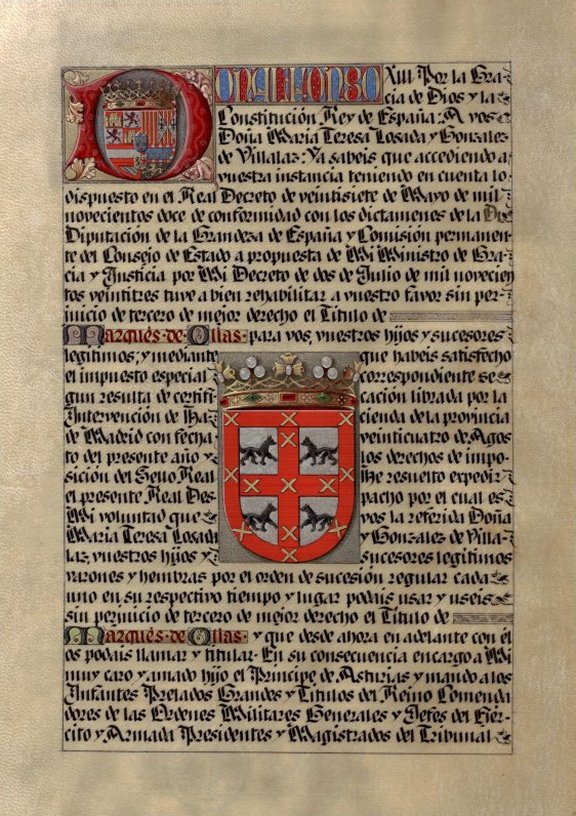 DON ALFONSO XIII Por la Gra-
cia de Dios y la
Constitución Rey de España: A vos
Doña Maria Teresa Losada y Gonzalez
de Villalaz: Ya sabeis que accediendo a
vuestra instancia teniendo en cuenta lo
dispuesto en el Real Decreto de veintisiete de Mayo de mil
novecientos doce de conformidad con los dictamenes de la
Diputación de la Grandeza de España y Comisión permanen-
te del Consejo de Estado a propuesta de Mi Ministro de Gra-
cia y Justicia por Mi Decreto de dos de Julio de mil novecien
tos veintitres tuve a bien rehabilitar a vuestro favor sin per-
juicio de tercero de mejor derecho el Titulo de
Marqués de Ollas para vos, vuestros hijos y sucesores
legitimos; y mediante que habeis satisfecho
el impuesto especial correspondiente se-
gun resulta de certifi- cación librada por la
Intervención de Ha- cienda de la provincia
de Madrid con fecha veinticuatro de Agos
to del presente año y los derechos de impo-
sición del Sello Real He resuelto expedir
el presente Real Des- pacho por el cual es
Mi voluntad que vos la referida Doña
Maria Teresa Losada y Gonzalez de Villa-
laz, vuestros hijos y sucesores legitimos
varones y hembras por el orden de sucesión regular cada
uno en su respectivo tiempo y lugar podais usar y useis
sin perjuicio de tercero de mejor derecho el Titulo de
Marqués de Ollas y que desde ahora en adelante con él
os podais llamar y titular. En su consecuencia encargo a Mi
muy caro y amado hijo el Principe de Asturias y mando a los
Infantes Prelados Grandes y Titulos del Reino Comenda
dores de las Ordenes Militares Generales y Jefes del Ejér-
cito y Armada Presidentes y Magistrados del Tribunal